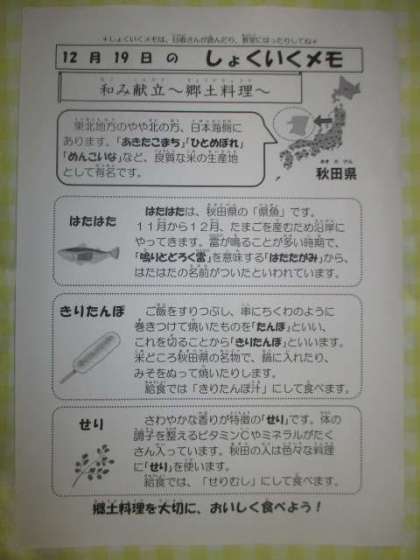 ＊しょくいくメモは、日直さんが読んだり、教室にはったりしてね＊
12月19日の しょくいくメモ
和み献立～郷土料理～
東北地方のやや北の方、日本海側に
あります。「あきたこまち」「ひとめぼれ」
「めんこいな」など、良質な米の生産地
として有名です。
秋田県
はたはた
はたはたは、秋田県の「県魚」です。
11月から12月、たまごを産むため沿岸に
やってきます。雷が鳴ることが多い時期で、
「鳴りとどろく雷」を意味する「はたたがみ」から、
はたはたの名前がついたといわれています。
きりたんぽ
ご飯をすりつぶし、串にちくわのように
巻きつけて焼いたものを「たんぽ」といい、
これを切ることから「きりたんぽ」といいます。
米どころ秋田県の名物で、鍋に入れたり、
みそをぬって焼いたりします。
給食では「きりたんぽ汁」にして食べます。
せり
さわやかな香りが特徴の「せり」です。体の
調子を整えるビタミンCやミネラルがたく
さん入っています。秋田の人は色々な料理
に「せり」を使います。
給食では、「せりむし」にして食べます。
郷土料理を大切に、おいしく食べよう！